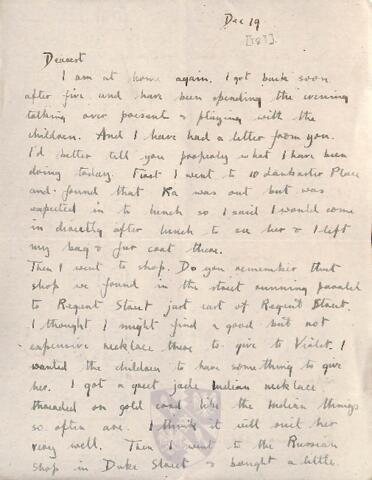 Dec 19
[1917].
Dearest
I am at home again. I got back soon
after five and have been spending the evening
talking over presents & playing with the
children. And I have had a letter from you.
I'd better tell you properly what I have been
doing today. First I went to 10 Lancaster Place
and found that Ka was out but was
expected in to lunch so I said I would come
in directly after lunch to see her & I left
my bag & fur coat there.
Then I went to shop. Do you remember that
shop we found in the street running parallel
to Regent Street just east of Regent Street.
I thought I might find a good but not
expensive necklace there to give to Violet. I
wanted the children to have something to give
her. I got a jade Indian necklace
threaded on gold cord like the Indian things
so often are. I think it will suit her
very well. Then I went to the Russian
shop in Duke Street & bought a little